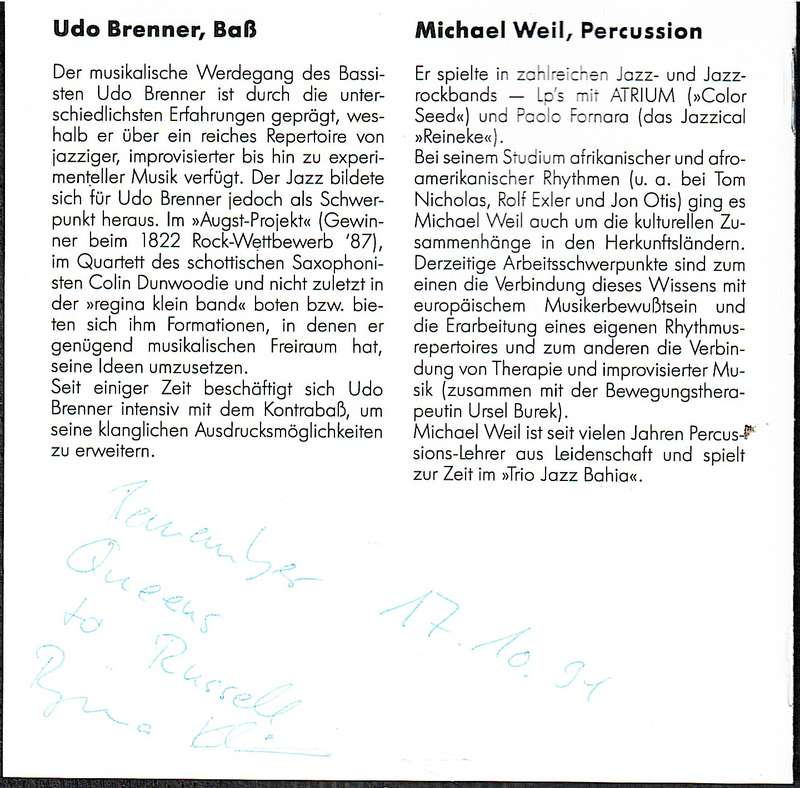 Udo Brenner, Baß
Der musikalische Werdegang des Bassi-
sten Udo Brenner ist durch die unter-
schiedlichsten Erfahrungen geprägt, wes-
halb er über ein reiches Repertoire von
jazziger, improvisierter bis hin zu experi-
menteller Musik verfügt. Der Jazz bildete
sich für Udo Brenner jedoch als Schwer-
punkt heraus. Im »Augst-Projekt« (Gewin-
ner beim 1822 Rock-Wettbewerb '87),
im Quartett des schottischen Saxophoni-
sten Colin Dunwoodie und nicht zuletzt in
der »regina klein band« boten bzw. bie-
ten sich ihm Formationen, in denen er
genügend musikalischen Freiraum hat,
seine Ideen umzusetzen.
Seit einiger Zeit beschäftigt sich Udo
Brenner intensiv mit dem Kontrabaß, um
seine klanglichen Ausdrucksmöglichkeiten
zu erweitern.
Michael Weil, Percussion
Er spielte in zahlreichen Jazz- und Jazz-
rockbands — Lp's mit ATRIUM (»Color
Seed«) und Paolo Fornara (das Jazzical
»Reineke«).
Bei seinem Studium afrikanischer und afro-
amerikanischer Rhythmen (u. a. bei Tom
Nicholas, Rolf Exler und Jon Otis) ging es
Michael Weil auch um die kulturellen Zu-
sammenhänge in den Herkunftsländern.
Derzeitige Arbeitsschwerpunkte sind zum
einen die Verbindung dieses Wissens mit
europäischem Musikerbewußtsein und
die Erarbeitung eines eigenen Rhythmus-
repertoires und zum anderen die Verbin-
dung von Therapie und improvisierter Mu-
sik (zusammen mit der Bewegungsthera-
peutin Ursel Burek).
Michael Weil ist seit vielen Jahren Percus-
sions-Lehrer aus Leidenschaft und spielt
zur Zeit im »Trio Jazz Bahia«.
Remember
Queens
to Russell
Regina Klein
17.10.91